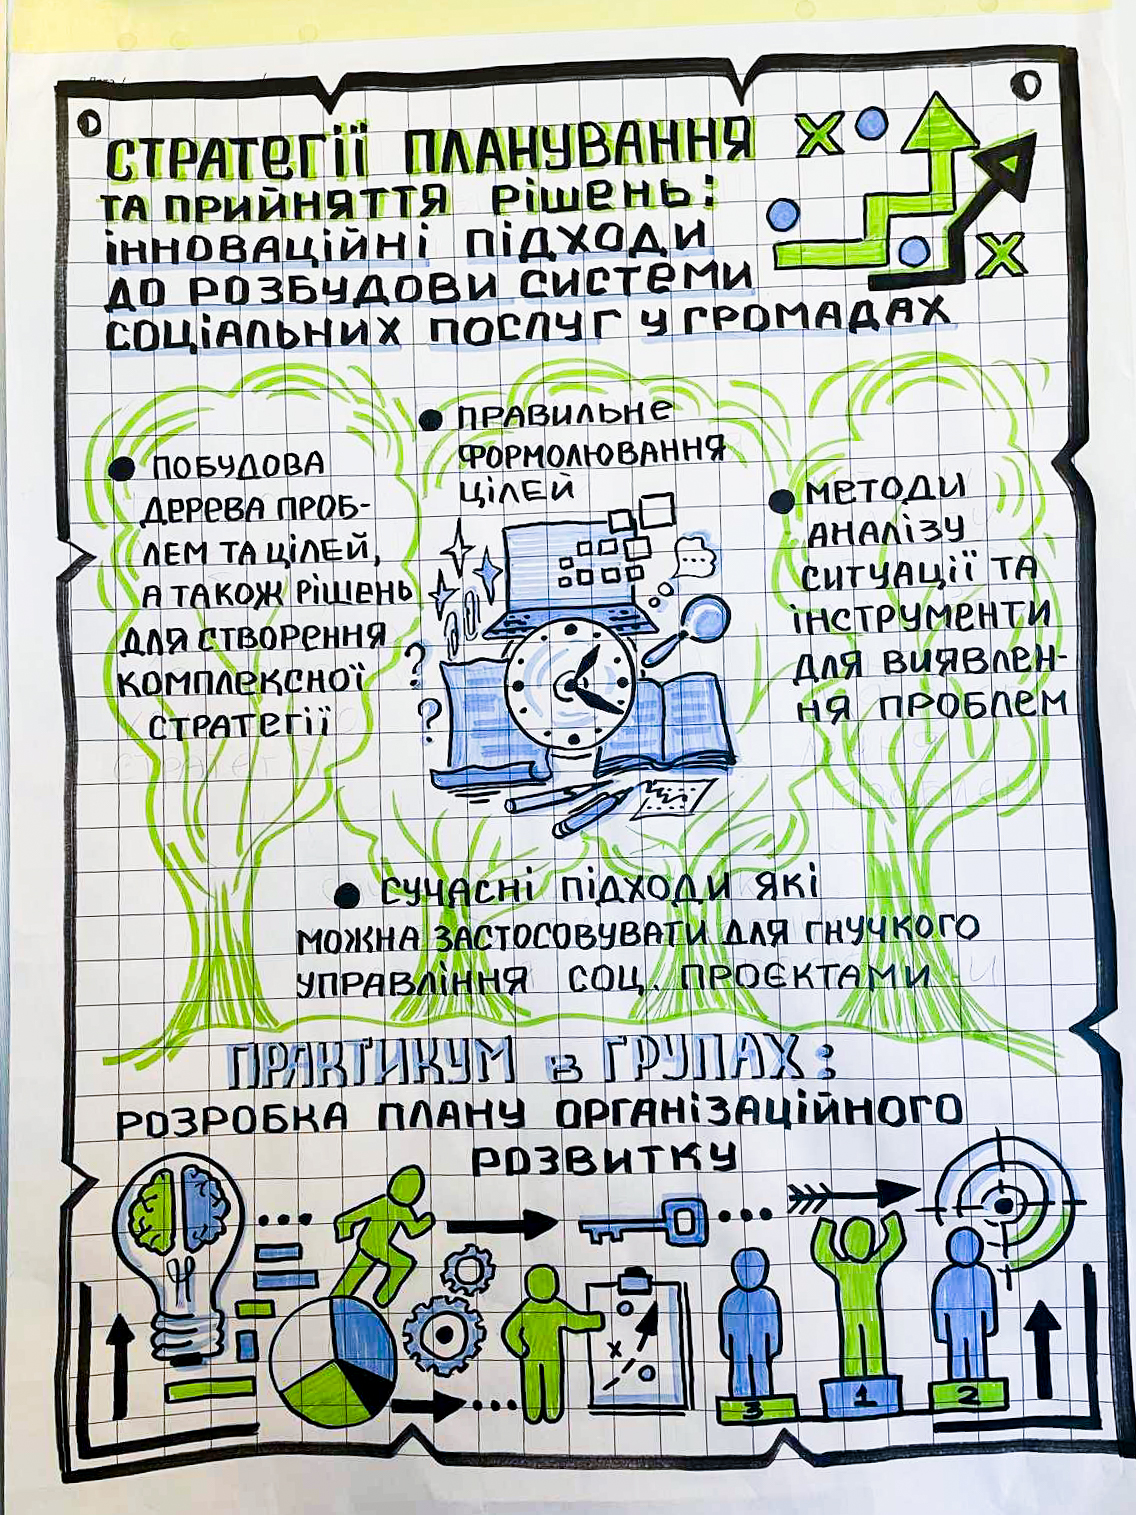 СТРАТЕГІЇ ПЛАНУВАННЯ
ТА ПРИЙНЯТТЯ РІШЕНЬ:
ІННОВАЦІЙНІ ПІДХОДИ
ДО РОЗБУДОВИ СИСТЕМИ
СОЦІАЛЬНИХ ПОСЛУГ У ГРОМАДАХ
ПРАВИЛЬНЕ
ФОРМОЛЮВАННЯ
ЦІЛЕЙ
ПОБУДОВА
ДЕРЕВА ПРОБ-
ЛЕМ ТА ЦІЛЕЙ,
А ТАКОЖ РІШЕНЬ
ДЛЯ СТВОРЕННЯ
КОМПЛЕКСНОЇ
СТРАТЕГІЇ
МЕТОДИ
АНАЛІЗУ
СИТУАЦІЇ ТА
ІНСТРУМЕНТИ
ДЛЯ ВИЯВЛЕН-
НЯ ПРОБЛЕМ
? ?
СУЧАСНІ ПІДХОДИ ЯКІ
МОЖНА ЗАСТОСОВУВАТИ ДЛЯ ГНУЧКОГО
УПРАВЛІННЯ СОЦ. ПРОЄКТАМИ
ПРАКТИКУМ В ГРУПАХ:
РОЗРОБКА ПЛАНУ ОРГАНІЗАЦІЙНОГО
РОЗВИТКУ
3 1 2